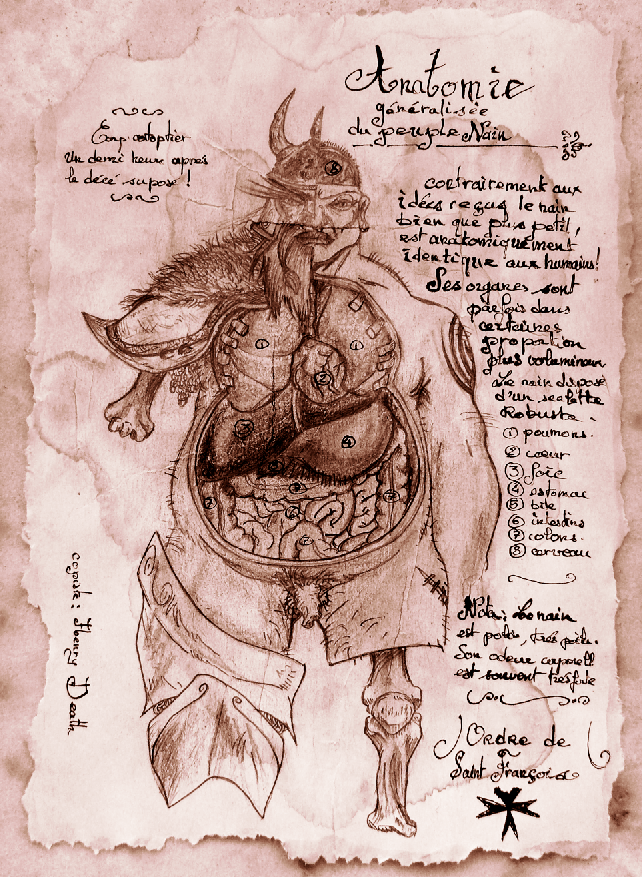 Anatomie
généralisée
du peuple Nain
un demi heure apres
le décé supose !
contrairement aux
idées reçus le nain
bien que plus petit,
est anatomiquement
identique aux humains!
Ses organes sont
parfois dans
certaines
proportion
plus volumineux
Le nain dispose
d'un seclette
Robuste.
① poumons.
② cœur
③ foie
④ estomac
⑤ bile
⑥ intestins
⑦ colons.
⑧ cerveau
Nota: Le nain
est poilu, très poilu.
Son odeur corporell
est souvent très forte
copiste: Henry Death
Ordre de
Saint François